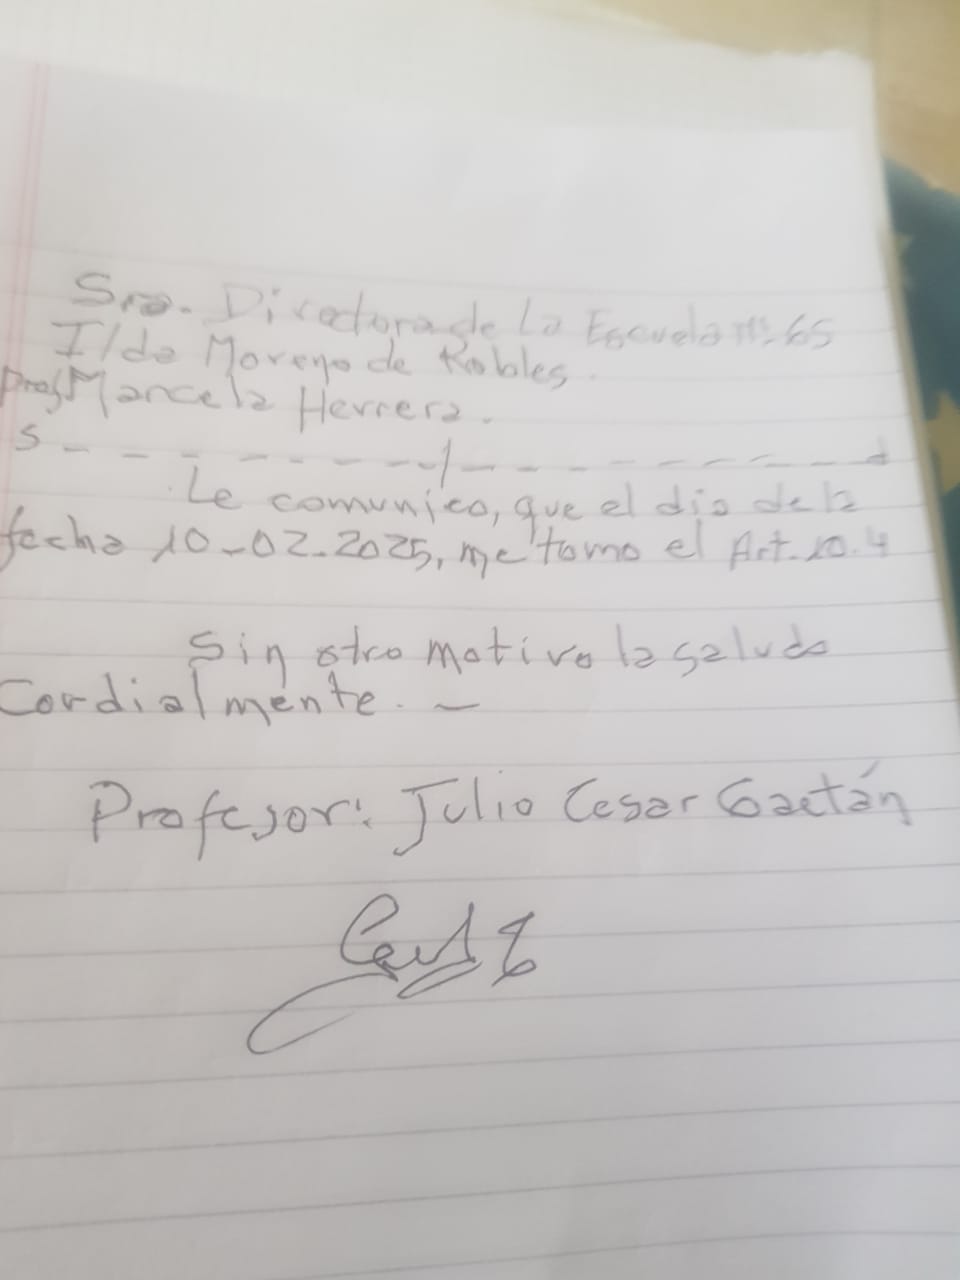 Sra. Directora de la Escuela N° 65
Ilda Moreno de Robles.
Prof. Marcela Herrera.
S_ _ _ _ _ _ _ _/_ _ _ _ _ _ _ _ d
Le comunico, que el día de la
fecha 10-02-2025, me tomo el Art. 10.4
Sin otro motivo la saludo
Cordialmente. –
Profesor: Julio Cesar Gaetán